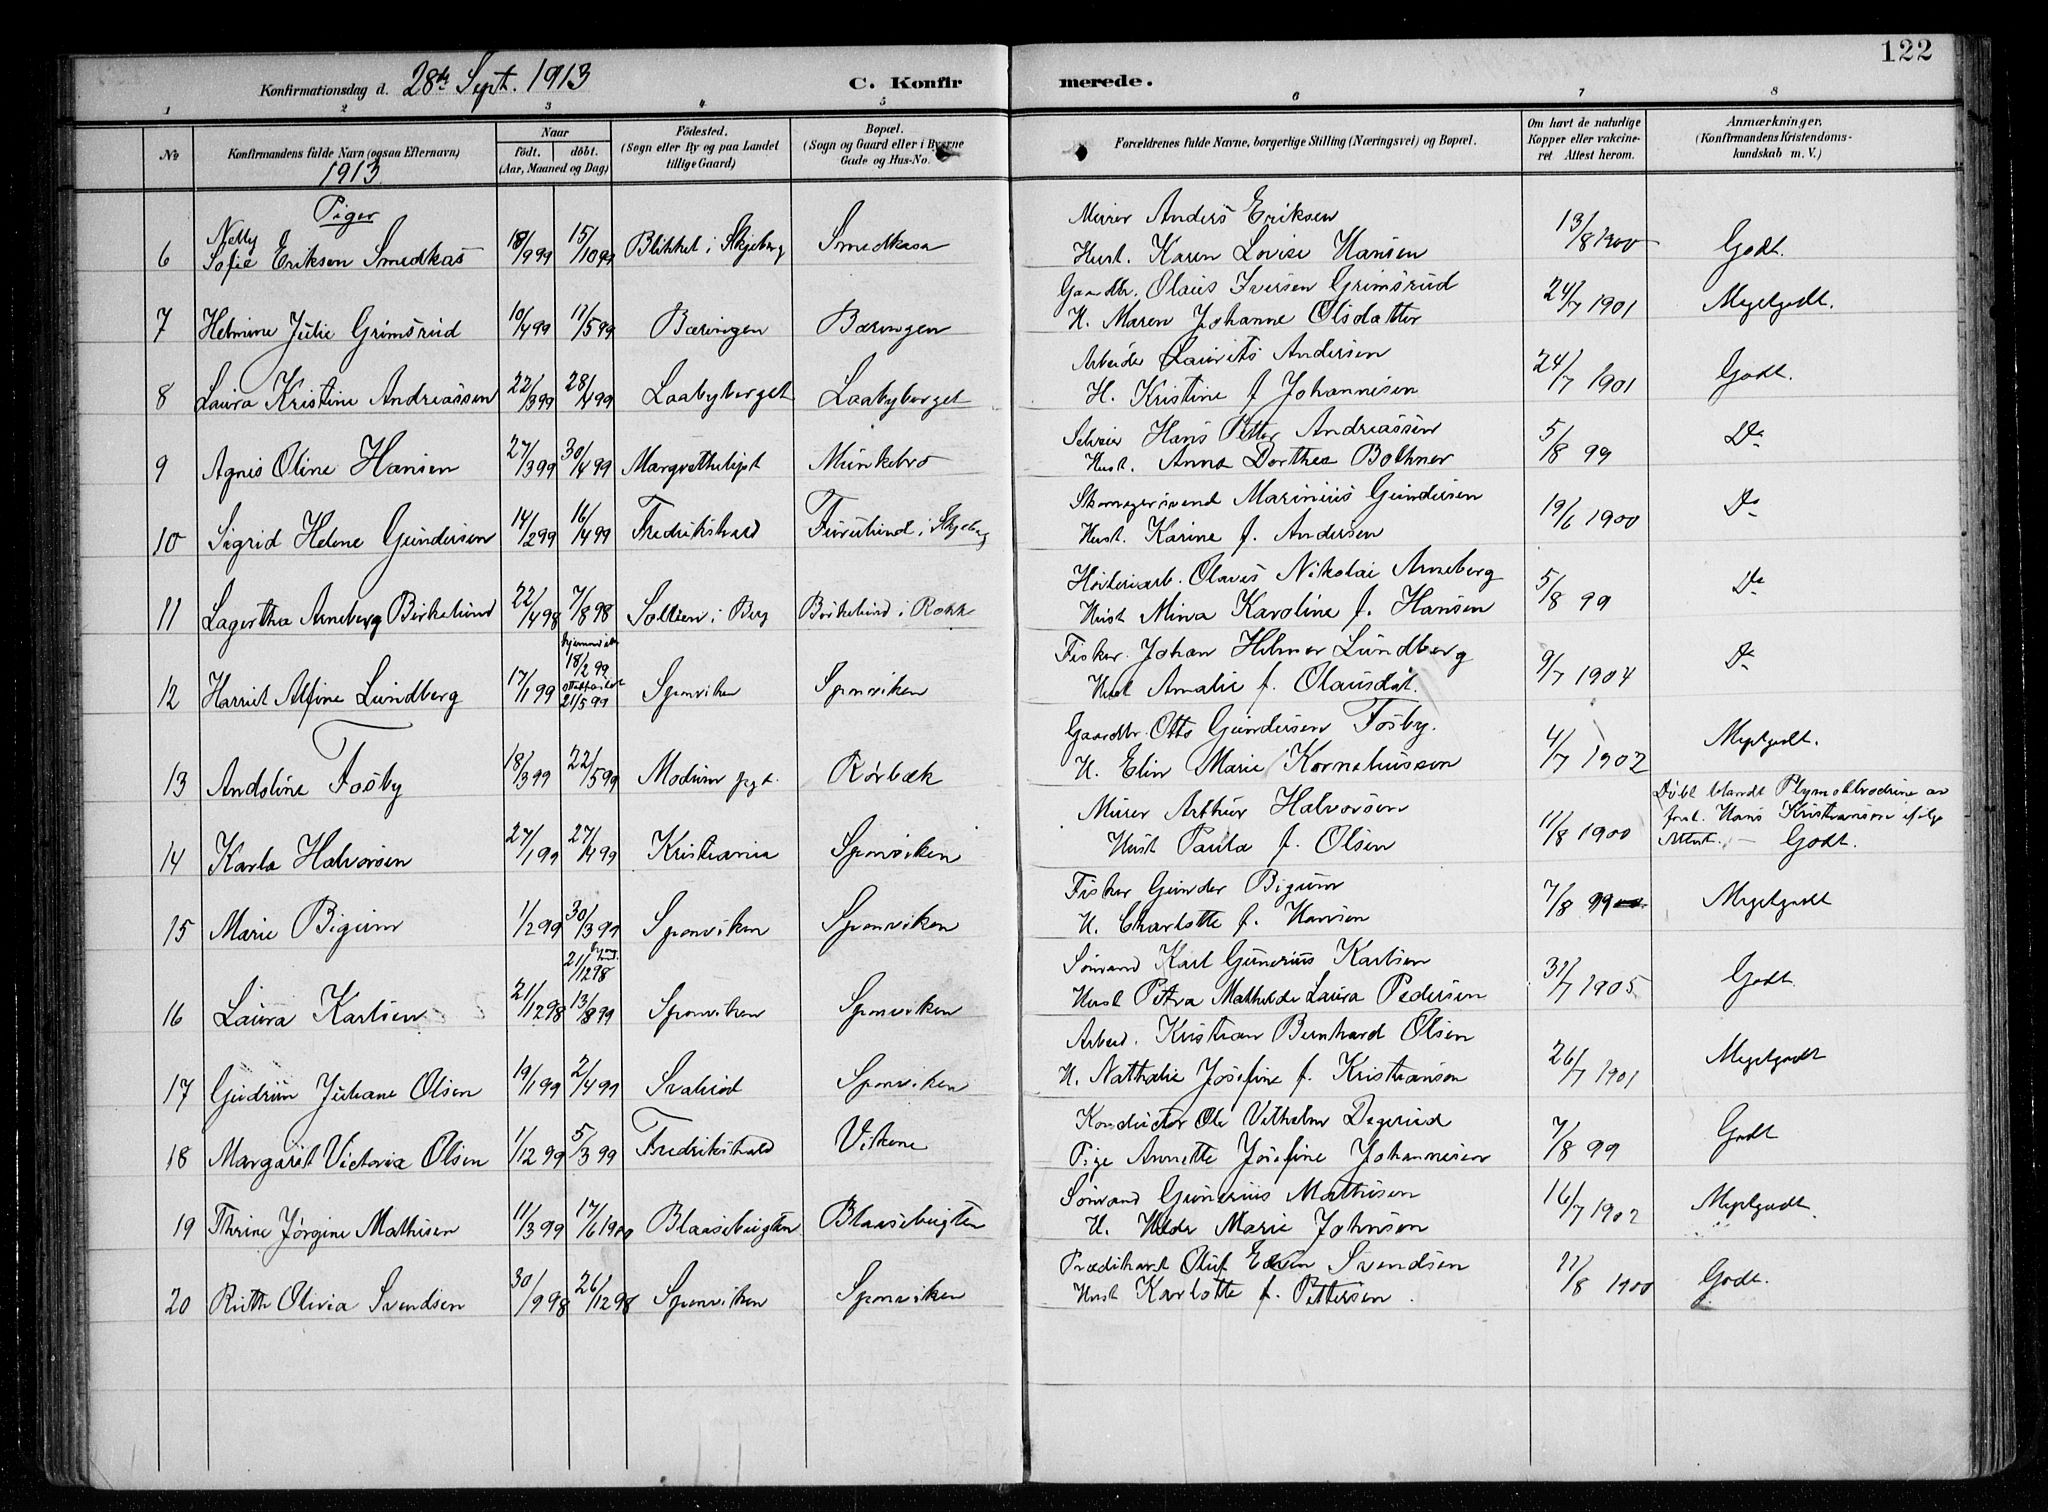 122
Konfirmationsdag d. 28de Sept. 1913 C. Konfirmerede.
1 2 3 4 5 6 7 8
No
Konfirmandens fulde Navn (ogsaa Efternavn)
1913
Naar
födt. döbt.
(Aar, Maaned og Dag)
Födested.
(Sogn eller By og paa Landet
tillige Gaard)
Bopæl.
(Sogn og Gaard eller i Byerne
Gade og Hus-No.
Forældrenes fulde Navne, borgerlige Stilling (Næringsvei) og Bopæl.
Om havt de naturlige
Kopper eller vakcine-
ret Attest herom.
Anmærkninger.
(Konfirmandens Kristendoms-
kundskab m. V.)
Piger
Nelly
6 Sofie Eriksen Smedkas 18/9 99 15/10 99 Blikket i Skjeberg Smedkasa
Murer Anders Eriksen
Hust. Karen Lovise Hansen 13/8 1900 Godt.
7 Helmine Julie Grimsrud 10/4 99 11/5 99 Bæringen Bæringen
Gaardbr. Olaus Iversen Grimsrud
H. Maren Johanne Olsdatter 24/7 1901 Megetgodt.
8 Laura Kristine Andreassen 22/3 99 28/4 99 Laabyberget Laabyberget
Arbeider Laurits Andersen
H. Kristine f. Johannesen 24/7 1901 Godt.
9 Agnes Oline Hansen 27/3 99 30/4 99 Munkebro
Hans Petter Andreassen
Hust. Anna Dorthea Bothner 5/8 99 Do
10 Sigrid Helene Gundersen 14/2 99 16/4 99 Fredrikshald Furulund i Skjeberg
Skomagersvend Marinius Gundersen
Hust. Karine f. Andersen 19/6 1900 Do
11 Lagertha Arneberg Birkelund 22/4 98 7/8 98 Sollien i Berg Birkelund i Rokk
Olaves Nikolai Arneberg
Hust Mina Karoline f. Hansen 5/8 99 Do
12 Harriet Alfine Lundberg 17/1 99 18/2 99 21/5 99 Sponviken Sponviken
Fisker. Johan Helmer Lundberg
Hust Amalie f. Olausdat. 9/7 1904 Do
13 Andoline Fosby 18/3 99 22/5 99 Modum pgt. Rörbæk
Gaardbr. Otto Gundersen Fosby.
H. Elin Marie Korneliussen 4/7 1902 Megetgodt.
14 Karla Halvorsen 27/1 99 27/4 99 Kristiania Sponviken
Murer Arthur Halvorsen
Hust Paula f. Olsen 11/8 1900
Döbt blandt Plymothbrödrene av
forst. Hans Kristiansen ifölge
Attest. – Godt.
15 Marie Bigum 1/2 99 30/3 99 Sponviken Sponviken
Fisker Gunder Bigum
H. Charlotte f. Hansen 7/8 99 Megetgodt
16 Laura Karlsen 21/12 98 21/12 98 13/8 99 Sponviken Sponviken
Sömand Karl Gunerius Karlsen
Hust Petra Mathilde Laura Pedersen 31/7 1905 Godt
17 Gudrun Juliane Olsen 19/1 99 2/4 99 Svalerød Sponviken
Arbeid. Kristian Bernhard Olsen
H. Nathalie Josefine f. Kristiansen 26/7 1901 Megetgodt
18 Margaret Victoria Olsen 1/12 99 5/3 99 Fredrikshald Vikene
Konduktör Ole Vilhelm Degerud
Pige Annette Josefine Johannesen 7/8 99 Godt
19 Thrine Jørgine Mathisen 11/3 99 17/6 1900 Blaasebugten Blaasebugten
Sömand Gunerius Mathisen
H. Hilda Marie Johnsen 16/7 1902 Megetgodt
20 Ruth Olivia Svendsen 30/9 98 26/12 98 Sponviken Sponviken
Prædikant Oluf Edvin Svendsen
Hust Karlotte f. Pettersen. 11/8 1900 Godt.